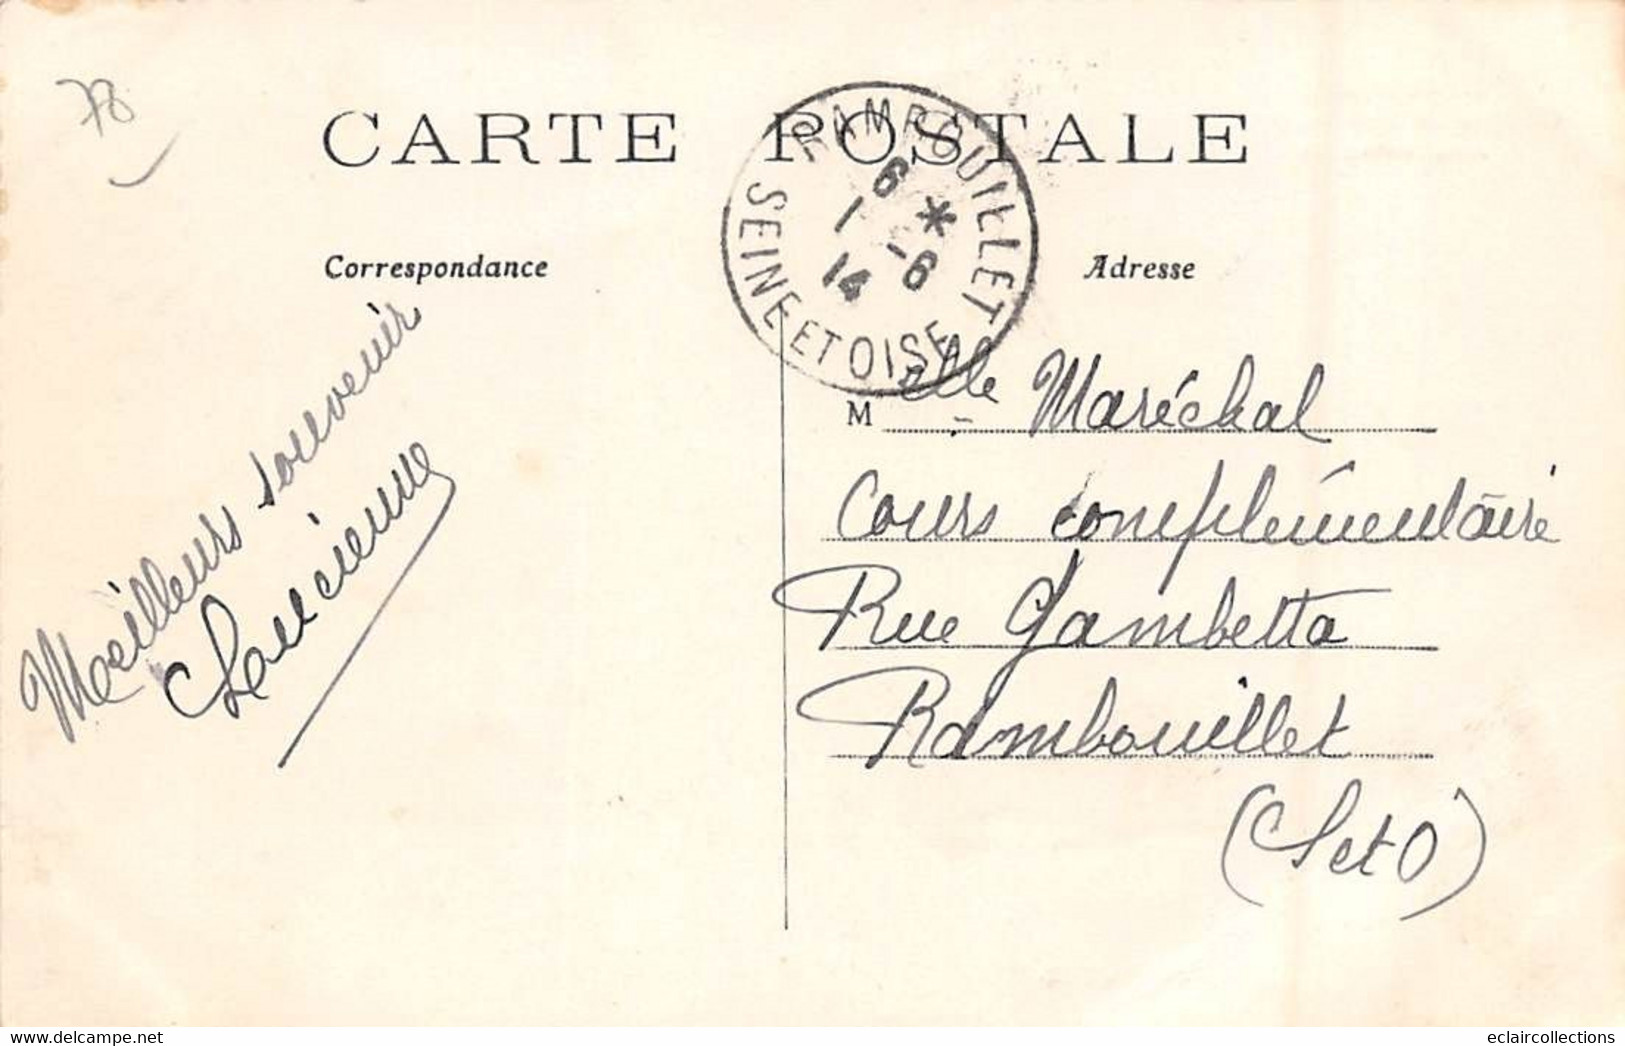 78
CARTE POSTALE
RAMBOUILLET
6 *
1 -6
14
SEINE-ET-OISE
Correspondance
Adresse
Meilleurs souvenir
M elle Maréchal
Cours complémentaire
Rue Gambetta
Rambouillet
(S et O)
delcampe.net
eclaircollections